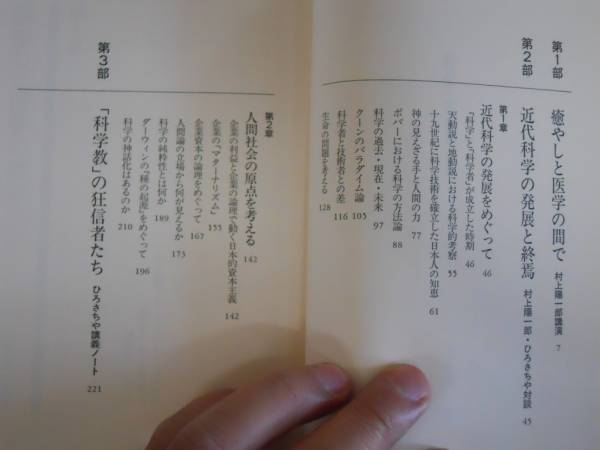 第1部 癒やしと医学の間で 村上陽一郎講演 7
第2部 近代科学の発展と終焉 村上陽一郎・ひろさちや対談 45
第1章
近代科学の発展をめぐって 46
「科学」と「科学者」が成立した時期 46
天動説と地動説における科学的考察 55
十九世紀に科学技術を確立した日本人の知恵 61
神の見えざる手と人間の力 77
ポパーにおける科学の方法論 88
科学の過去・現在・未来 97
クーンのパラダイム論 105
科学者と技術者との差 116
生命の問題を考える 128
第2章
人間社会の原点を考える 142
企業の利益と企業の論理で動く日本的資本主義 142
企業の「マターナリズム」 155
企業資本の論理をめぐって 167
人間論の立場から何が見えるか 173
科学の純粋性とは何か 189
ダーウィンの『種の起源』をめぐって 196
科学の神話化はあるのか 210
第3部 「科学教」の狂信者たち ひろさちや講義ノート 221